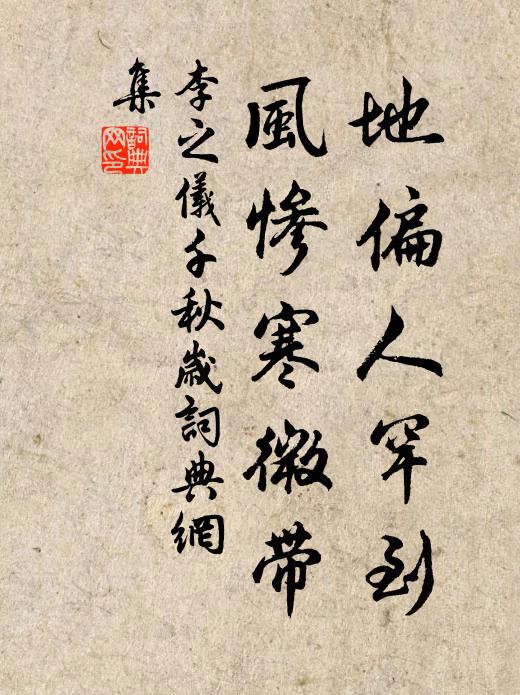 地偏人罕到
風慘寒微帶
李之儀千秋歲詞典網
集
詞典網印